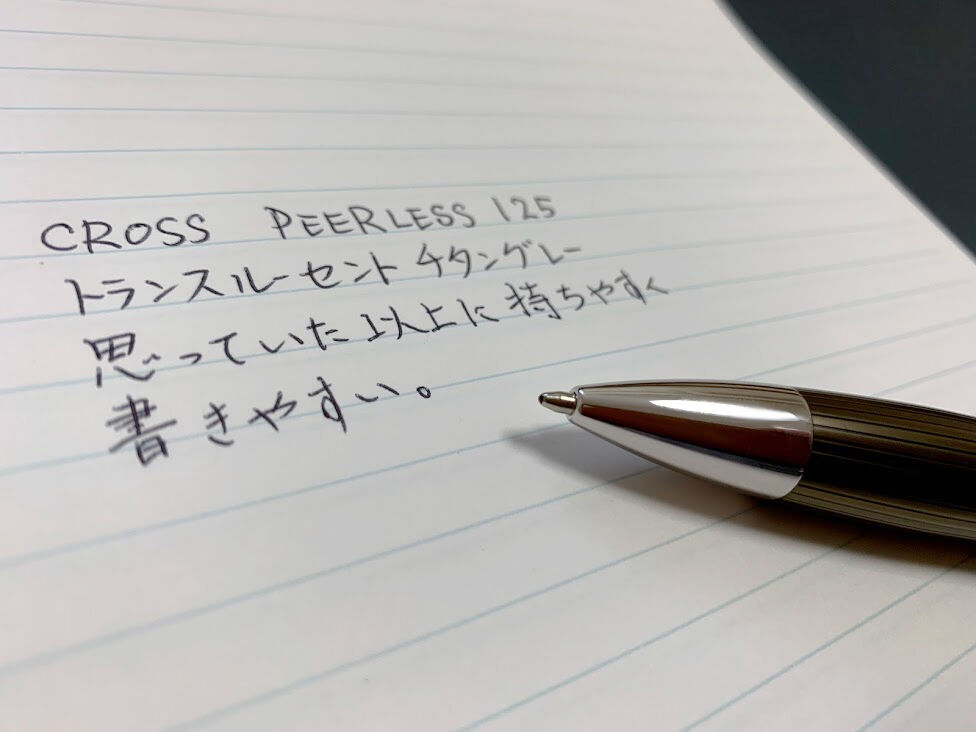 CROSS PEERLESS 125
トランスルーセント チタングレー
思っていた以上に持ちやすく
書きやすい。